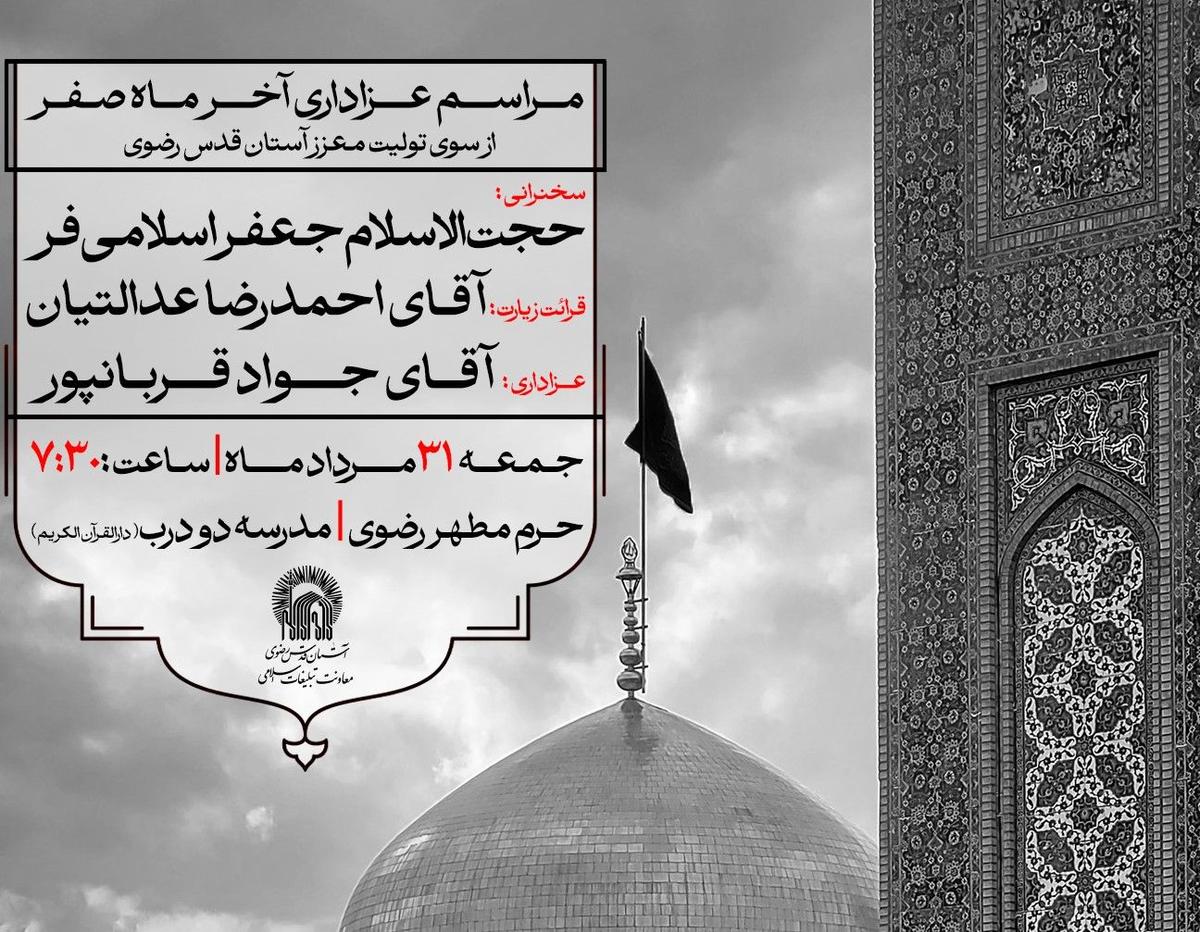 مراسم عزاداری آخر ماه صفر
از سوی تولیت معزز آستان قدس رضوی
سخنرانی:
حجت‌الاسلام جعفر اسلامی فر
قرائت زیارت: آقای احمدرضا عدالتیان
عزاداری: آقای جواد قربانپور
جمعه ۳۱ مرداد ماه | ساعت: ۷:۳۰
حرم مطهر رضوی | مدرسه دو درب (دارالقرآن الکریم)
آستان قدس رضوی
معاونت تبلیغات اسلامی